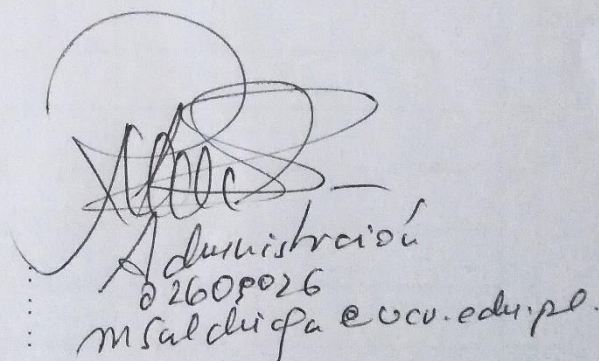 Administración
02609026
msalchiga@ucv.edu.pe.